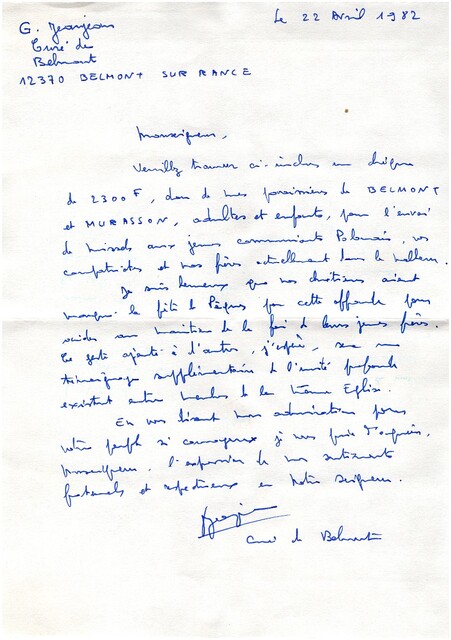 Le 22 Avril 1982
G. Jeanjean
Curé de
Belmont
12370 BELMONT SUR RANCE
Monseigneur,
Veuillez trouver ci-inclus un chèque
de 2300F, don de mes paroissiens de BELMONT
et MURASSON, adultes et enfants, pour l'envoi
de missels aux jeunes communiants Polonais, vos
compatriotes et nos frères actuellement dans le malheur.
Je suis heureux que nos chrétiens aient
marqué la fête de Pâques par cette offrande pour
aider au maintien de la foi de leurs jeunes frères.
Ce geste ajouté à d'autres, j'espère, sera un
témoignage supplémentaire de l'unité profonde
existant entre membres de la même Eglise.
En vous disant mon admiration pour
votre peuple si courageux je vous prie d'agréer,
Monseigneur, l'expression de mes sentiments
fraternels et respectueux en Notre Seigneur.
Jeanjean
curé de Belmont